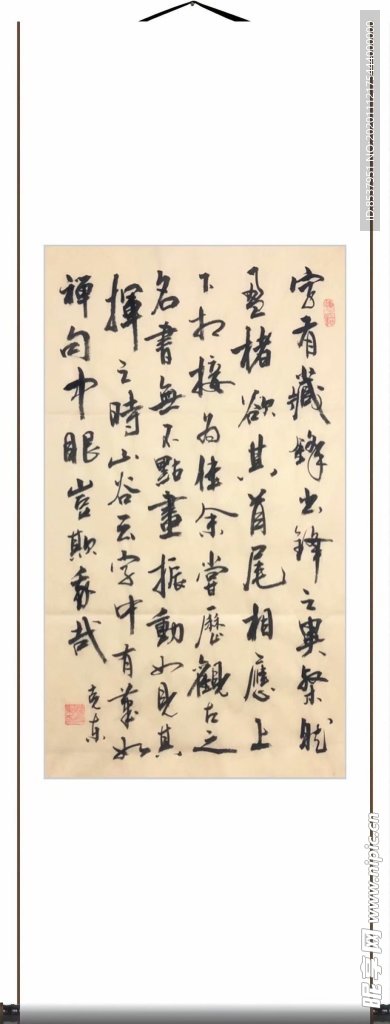 字有藏鋒出鋒之異粲然
盈楮欲其首尾相應上
下相接為佳余嘗歷觀古之
名書無不點畫振動如見其
揮之時山谷云字中有筆如
禪句中眼豈欺我哉
克東
ID:8537951 NO:20201112175444000000
昵享网 www.nipic.cn